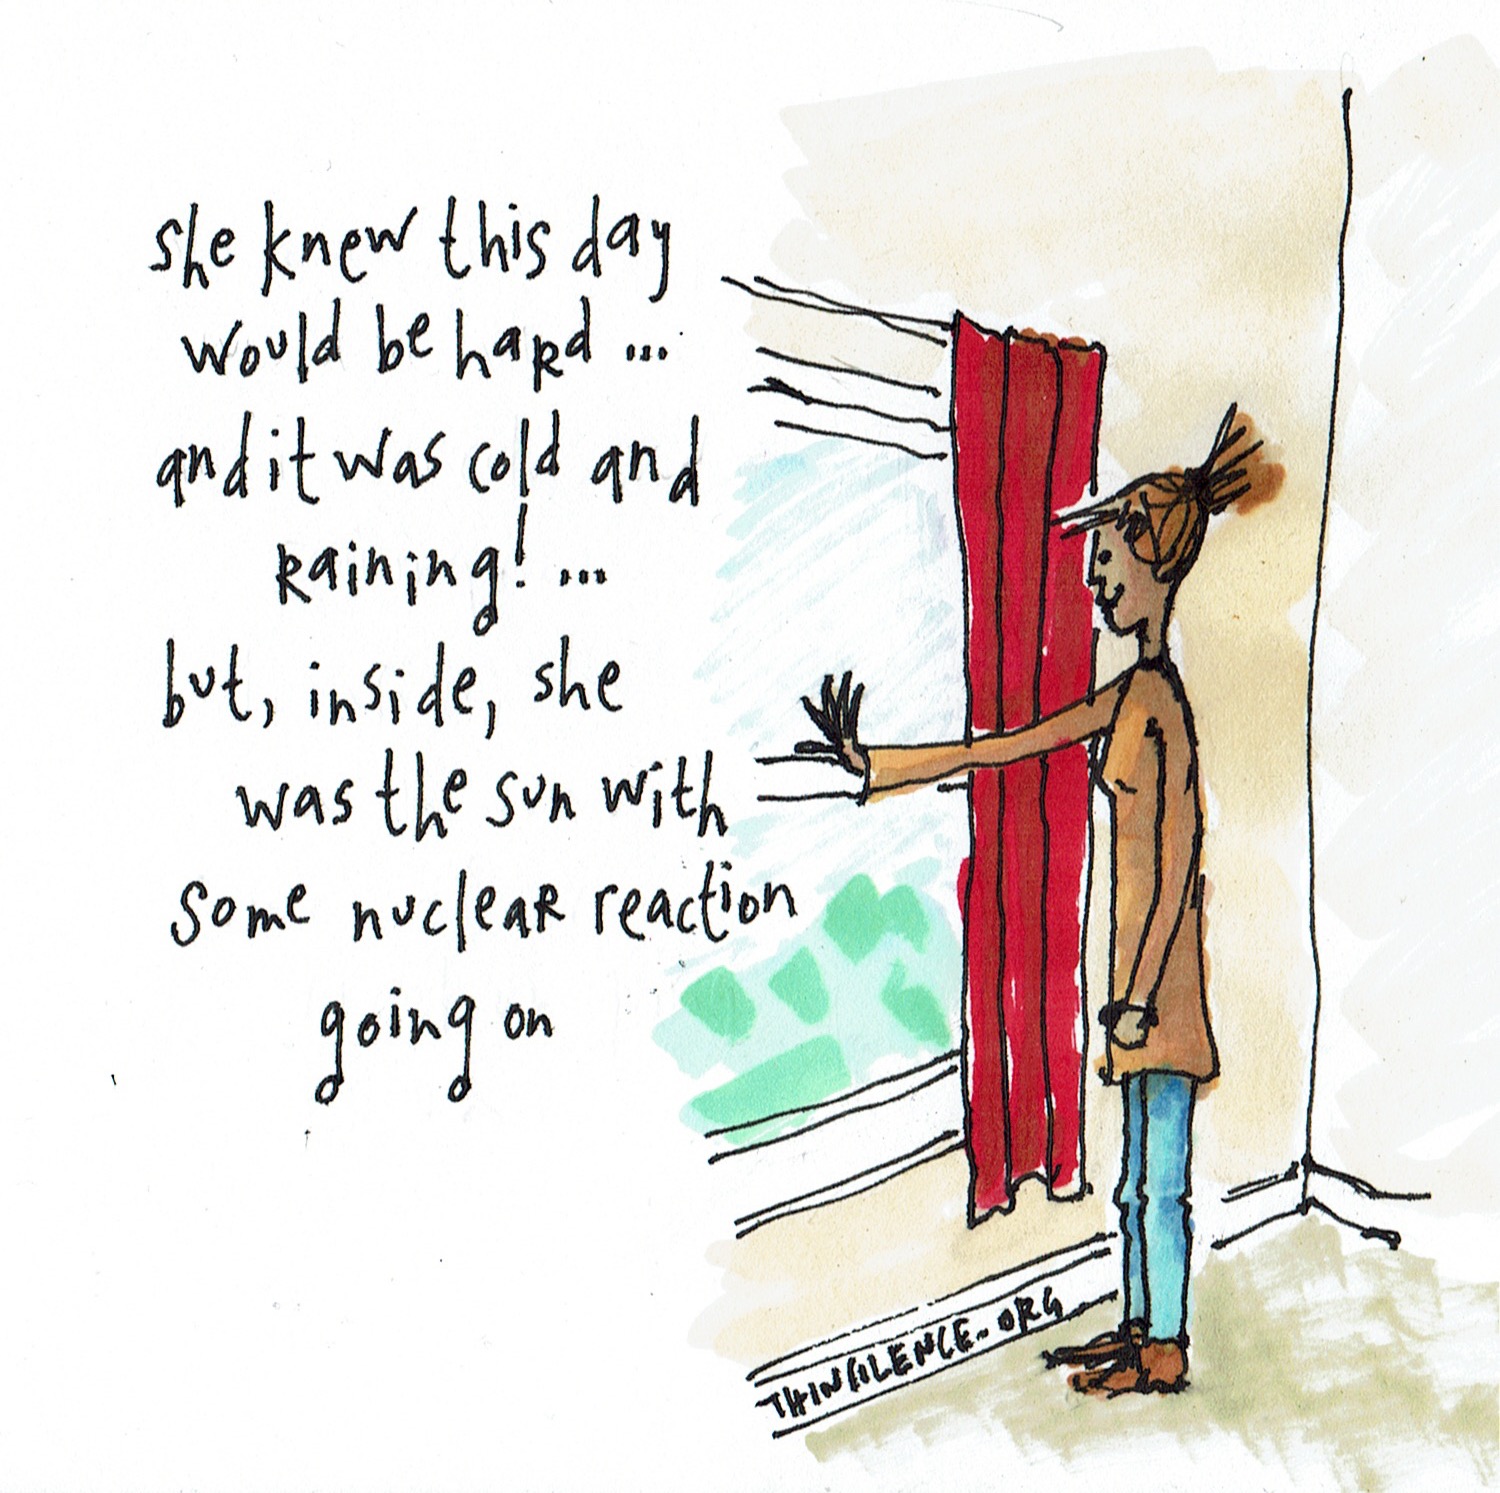 she knew this day
would be hard ...
and it was cold and
raining! ...
but, inside, she
was the sun with
some nuclear reaction
going on
THINSILENCE.ORG